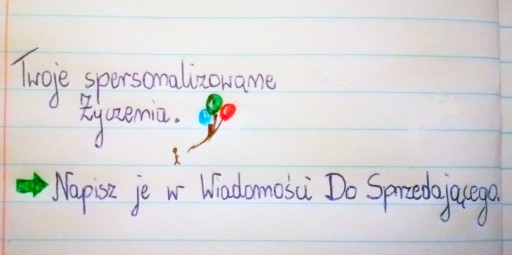 Twoje spersonalizowane
Życzenia.
Napisz je w Wiadomości Do Sprzedającego.